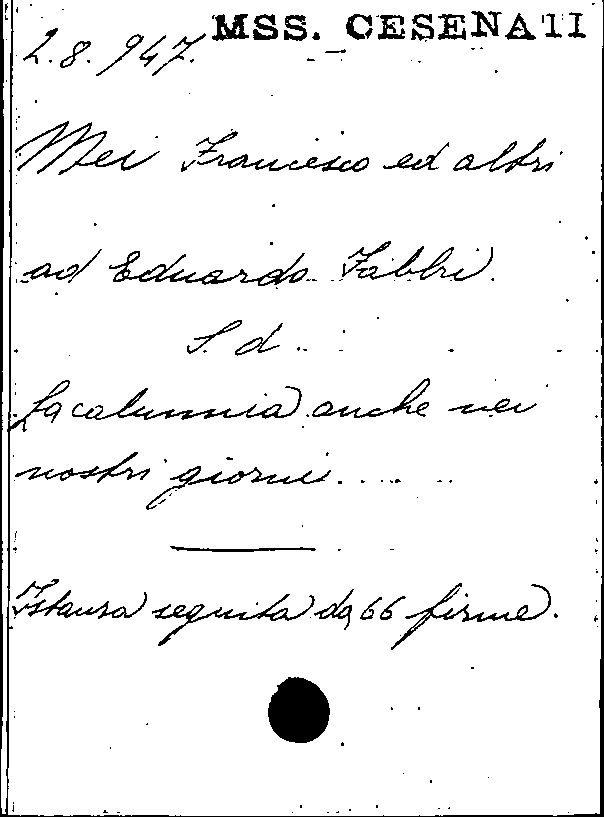 MSS. CESENA II
2.8.947.
Mei Francesco ed altri
ad Eduardo Fabbri.
S. d.
La calunnia anche nei
nostri giorni.....
Istanza seguita da 66 firme.